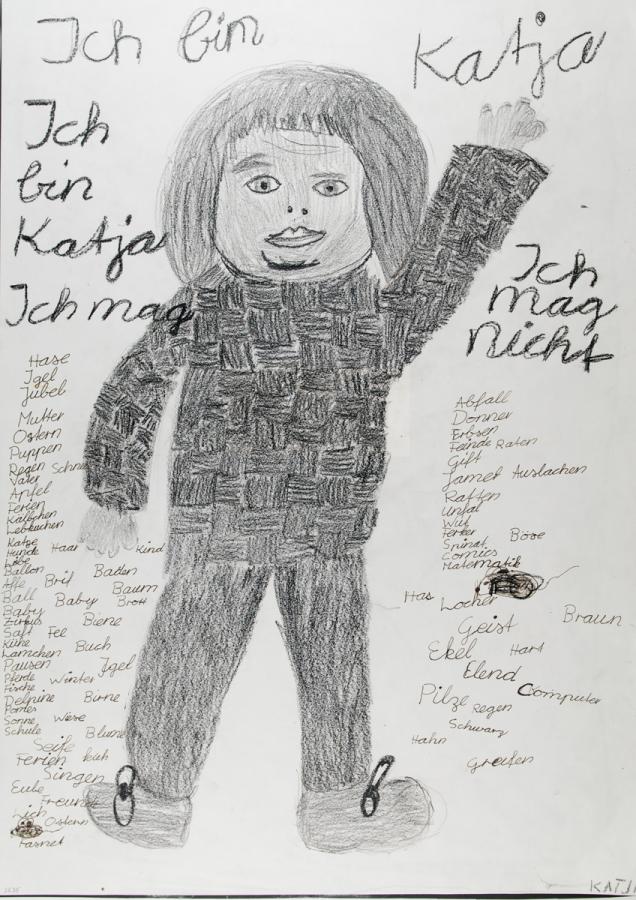 Ich bin Katja
Ich
bin
Katja
Ich mag
Hase
Igel
Jubel
Mutter
Ostern
Puppen
Regen Schnee
Vater
Apfel
Ferien
Kälbchen
Lebkuchen
Katze
Hunde Haar Kind
Liebe
Ballon Baden
Affe Brif
Ball Baby Baum
Baby Brott
Zirkus Biene
Saft Fee
Kühe
Lämchen Buch
Pausen Igel
Pferde Winter
Fische
Delphine Birne
Ponies
Sonne Wiese
Schule Blume
Seife
Ferien
Singen
Eule
Freunde
Ostern
Ich
mag
nicht
Abfall
Donner
Erbsen
Feinde Raten
Gift
Jamer Auslachen
Ratten
Unfal
Wut
Böse
Spinat
Comics
Matematik
Has
Locher
Geist Braun
Ekel Hart
Elend
Pilze Computer
Regen
Schwarz
Hahn
Greifen
KATJA